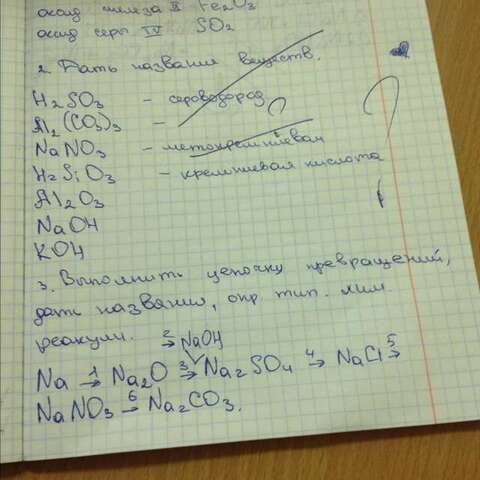 оксид железа II Fe2O3
оксид серы IV SO2
2. Дать названия веществ.
H2SO3 - сероводород
Al2(CO3)3 -
NaNO3 - метокремниевая
H2SiO3 - кремниевая кислота
Al2O3
NaOH
KOH
3. Выполнить цепочку превращений,
дать названия, опр тип. хим
реакции.
2→ NaOH
Na 1→ Na2O 3→ Na2SO4 4→ NaCl 5→
NaNO3 6→ Na2CO3.